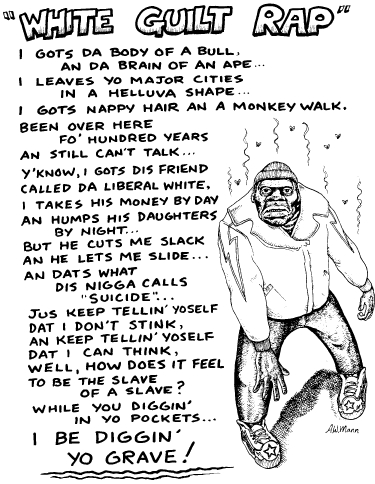 "WHITE GUILT RAP"
I GOTS DA BODY OF A BULL,
AN DA BRAIN OF AN APE...
I LEAVES YO MAJOR CITIES
IN A HELLUVA SHAPE...
I GOTS NAPPY HAIR AN A MONKEY WALK.
BEEN OVER HERE
FO' HUNDRED YEARS
AN STILL CAN'T TALK...
Y'KNOW, I GOTS DIS FRIEND
CALLED DA LIBERAL WHITE,
I TAKES HIS MONEY BY DAY
AN HUMPS HIS DAUGHTERS
BY NIGHT...
BUT HE CUTS ME SLACK
AN HE LETS ME SLIDE...
AN DATS WHAT
DIS NIGGA CALLS
"SUICIDE"...
JUS KEEP TELLIN' YOSELF
DAT I DON'T STINK,
AN KEEP TELLIN' YOSELF
DAT I CAN THINK,
WELL, HOW DOES IT FEEL
TO BE THE SLAVE
OF A SLAVE?
WHILE YOU DIGGIN'
IN YO POCKETS...
I BE DIGGIN'
YO GRAVE!
A.W.Mann